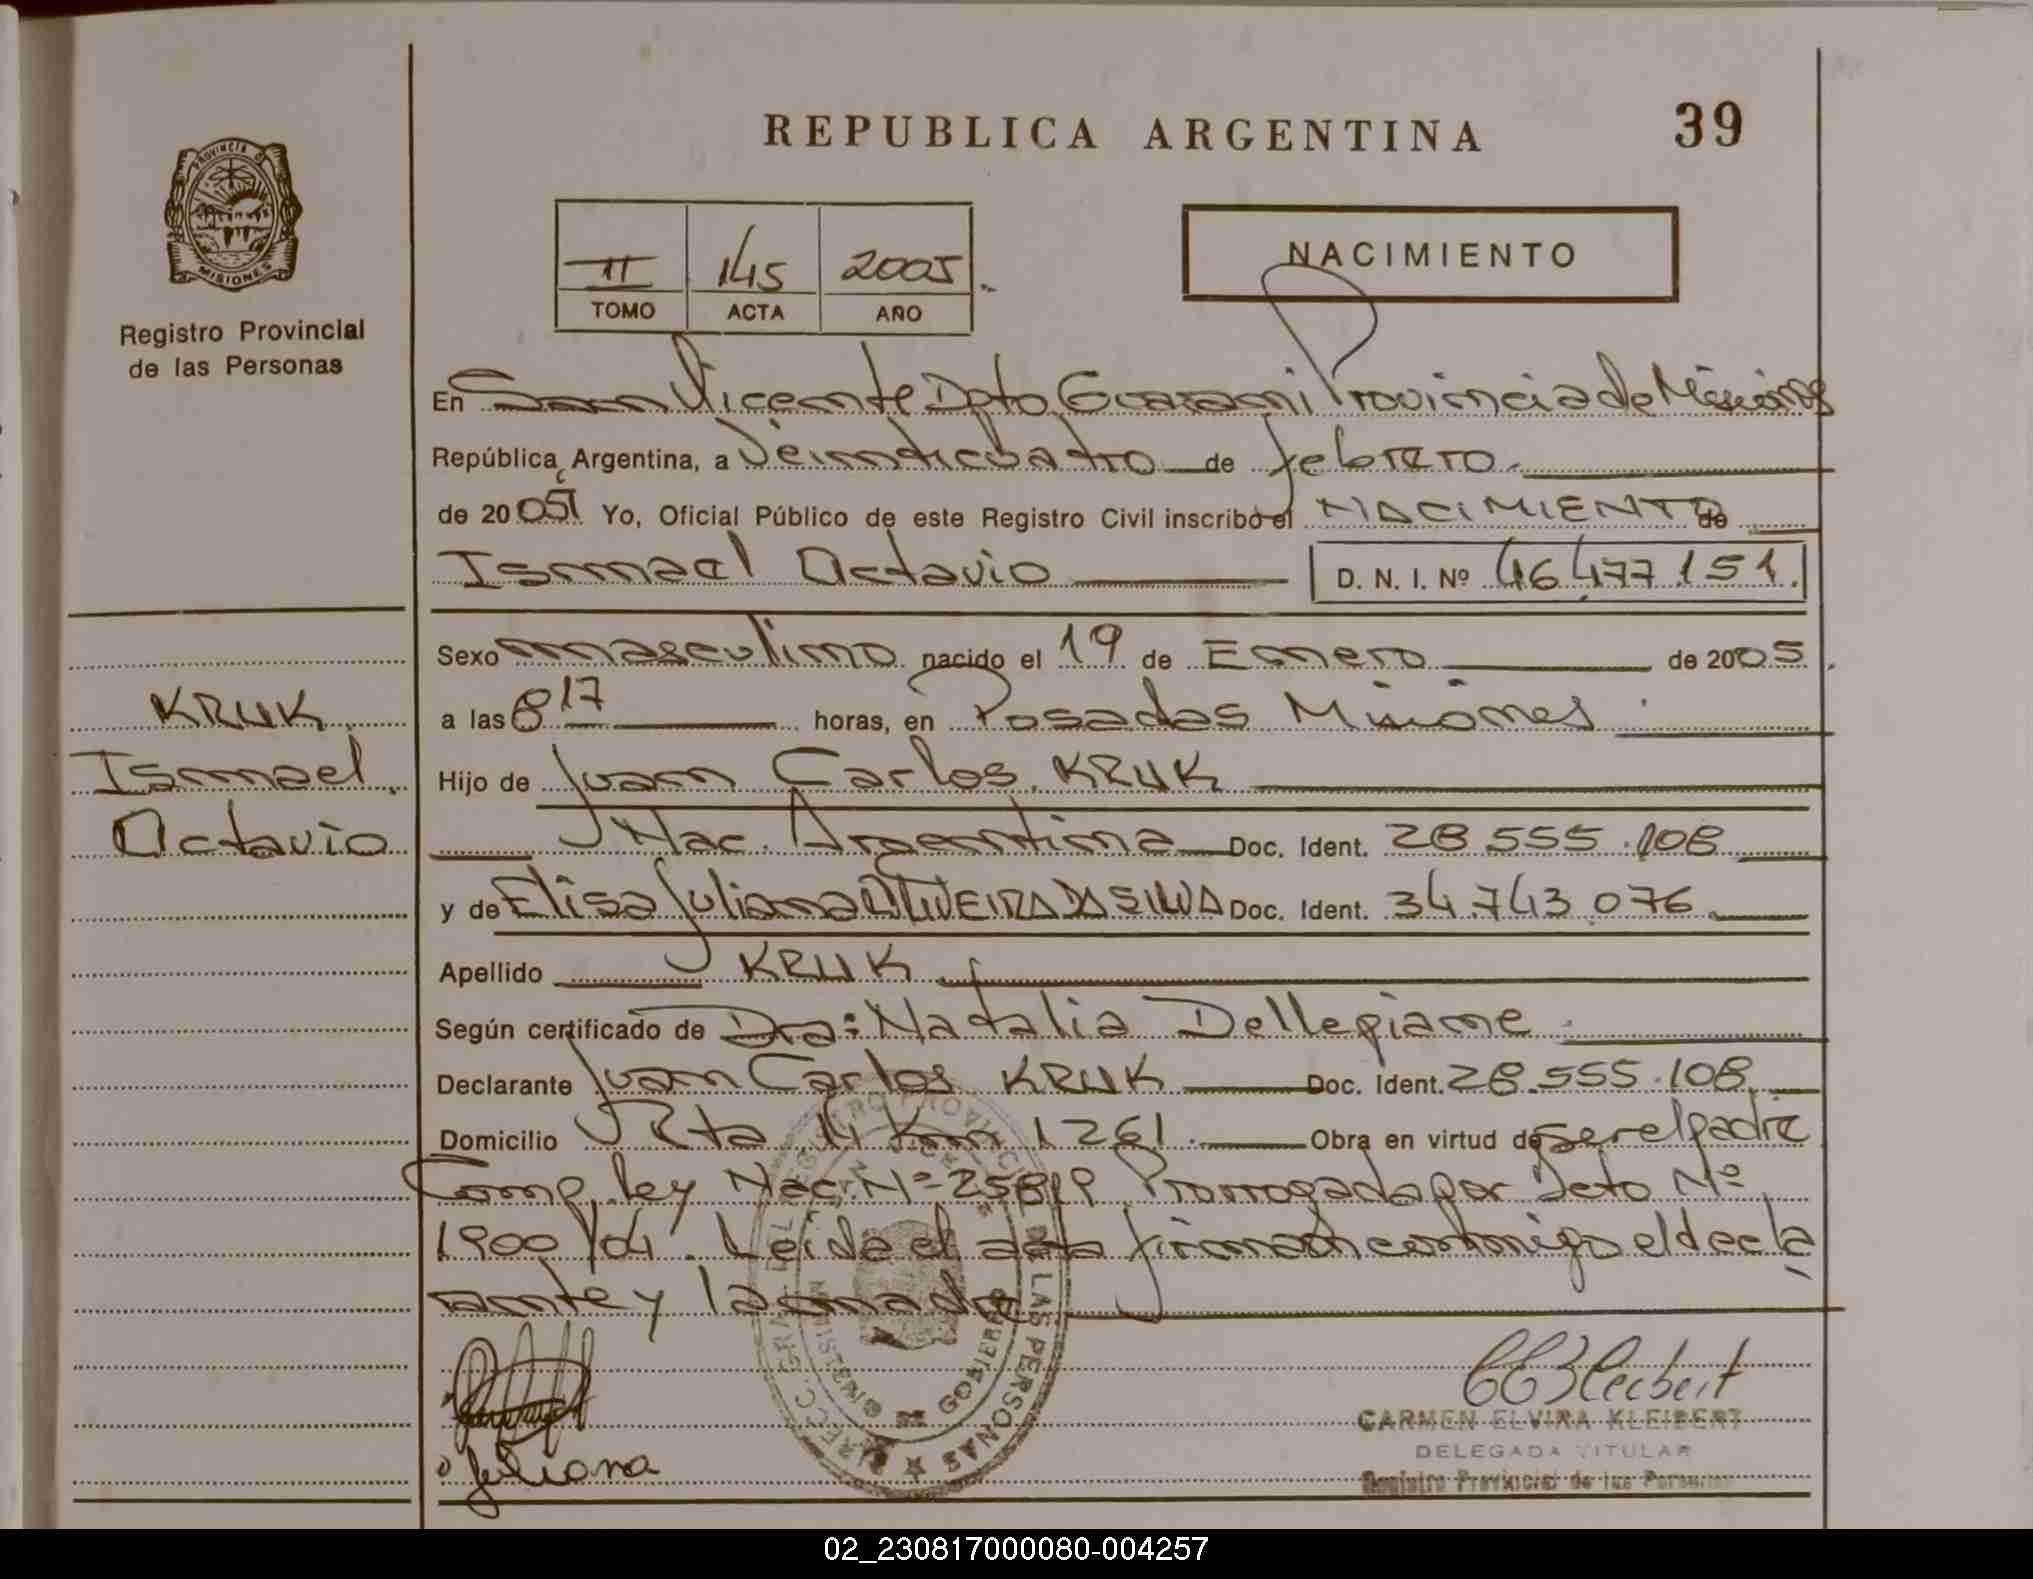 REPUBLICA ARGENTINA
39
PROVINCIA D
MISIONES
Registro Provincial
de las Personas
II 145 2005
TOMO ACTA AÑO
NACIMIENTO
En San Vicente Dpto Guarani Provincia de Misiones
República Argentina, a Veinticuatro de febrero
de 2005 Yo, Oficial Público de este Registro Civil inscribo el NACIMIENTO de
Ismael Octavio D. N. I. Nº 46.477.151.
Sexo masculino nacido el 19 de Enero de 2005
KRUK
a las 8 17 horas, en Posadas Misiones
Ismael
Hijo de Juan Carlos KRUK
Octavio
Nac. Argentina Doc. Ident. 28.555.108
y de Elisa Juliana OLIVEIRA DA SILVA Doc. Ident. 34.743.076
Apellido KRUK
Según certificado de Dra: Natalia Dellepiane
Declarante Juan Carlos KRUK Doc. Ident. 28.555.108
Domicilio Rta 14 Km 1261 Obra en virtud de ser el padre
Comp. ley Nac. Nº 25819 Prorrogado por Dcto Nº
1900/04. Leida el acta firman conmigo el decla
rante y la madre
Juliana
CARMEN ELVIRA KLEIBERT
DELEGADA TITULAR
Registro Provincial de las Personas
DE LAS PERSONAS
MINISTERIO GOBIERNO
02_230817000080-004257